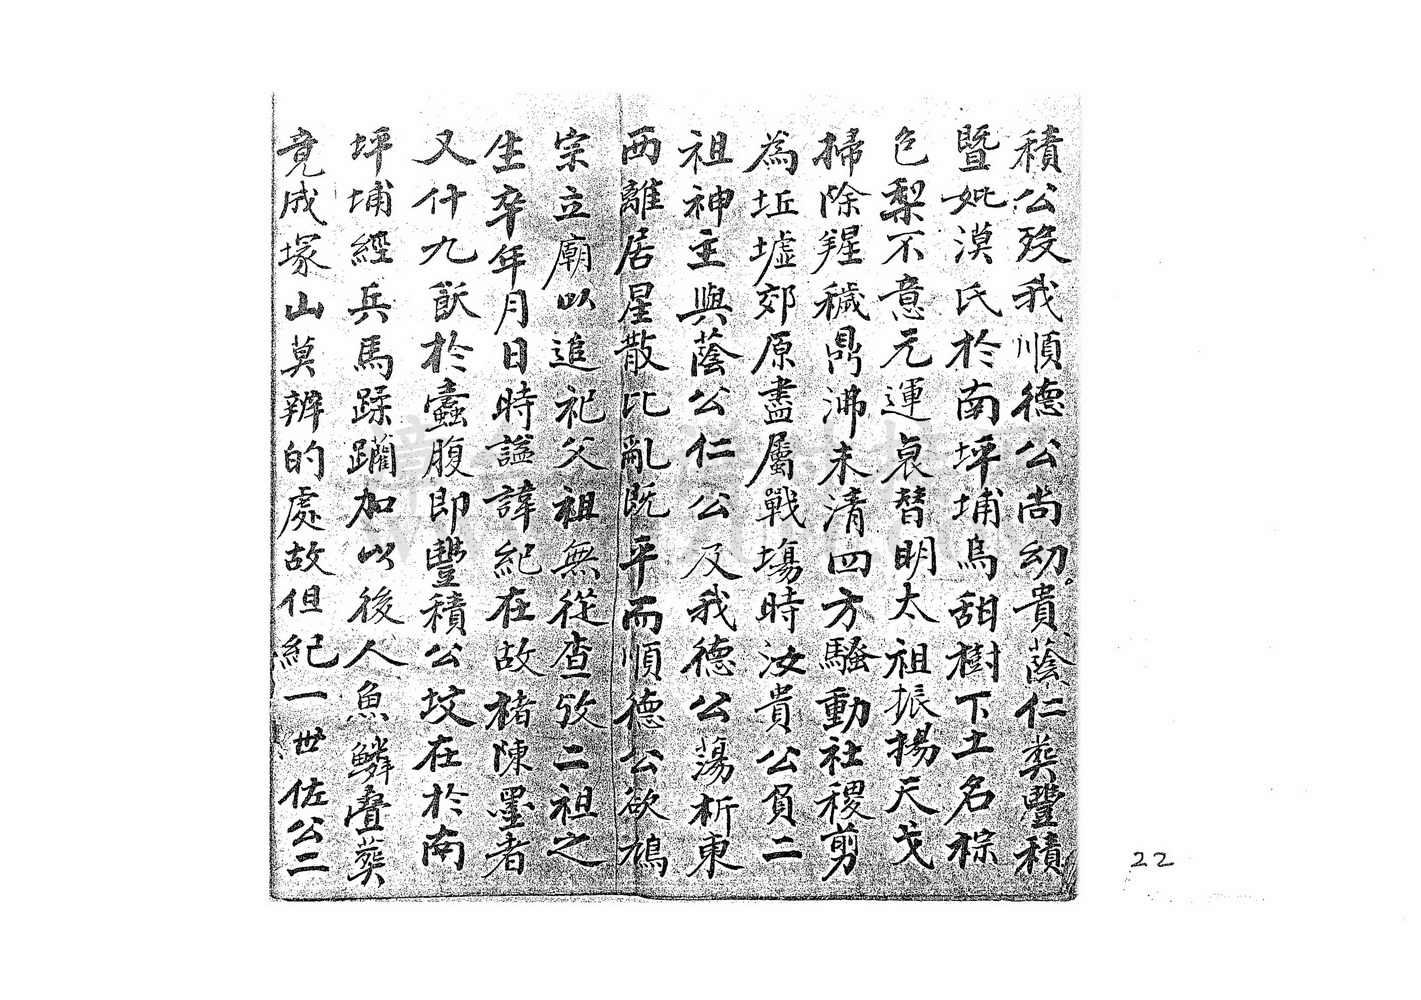 積公歿我順德公尚幼。貴蔭仁葬豐積
暨妣漠氏於南坪埔烏甜樹下土名棕
色梨不意元運衰替明太祖振揚天戈
掃除羶穢鼎沸未清四方騷動社稷剪
為坵墟郊原盡屬戰塲時汝貴公負二
祖神主與蔭公仁公及我德公蕩析東
西離居星散比亂既平而順德公欲鳩
宗立廟以追祀父祖無從查攷二祖之
生卒年月日時謚諱紀在故楮陳墨者
又什九飫於蠹腹即豐積公坟在於南
坪埔經兵馬蹂躪加以後人魚鱗叠葬
竟成塚山莫辨的處故但紀一世佐公二
22